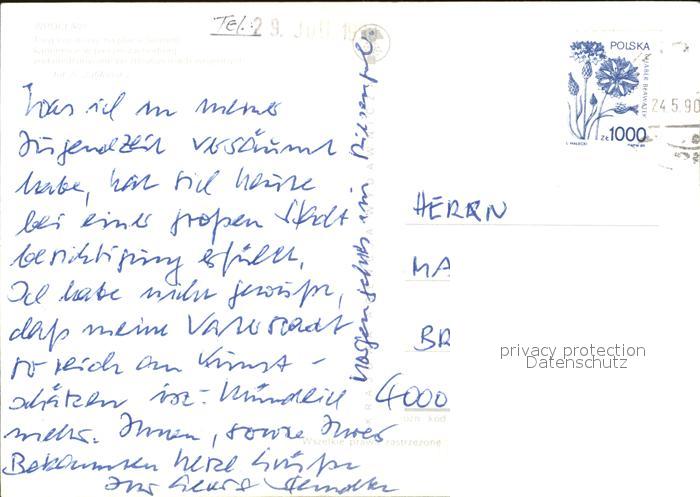 Tel.:
29. Juli 19
POLSKA
CHABER BŁAWATEK
zł 1000
24.5.90
Was ich in meiner
Jugendzeit versäumt
habe, hat sich heute
bei einer großen Stadt
besichtigung erfüllt.
Ich habe nicht gewußt,
daß meine Vaterstadt
so reich an Kunst-
schätzen ist. Mündlich
mehr. Ihnen, sowie Ihrer
Bekannten herzl. Grüße
Ihr
HERRN
MA
BR
4000
Wszelkie prawa zastrzeżone
privacy protection
Datenschutz